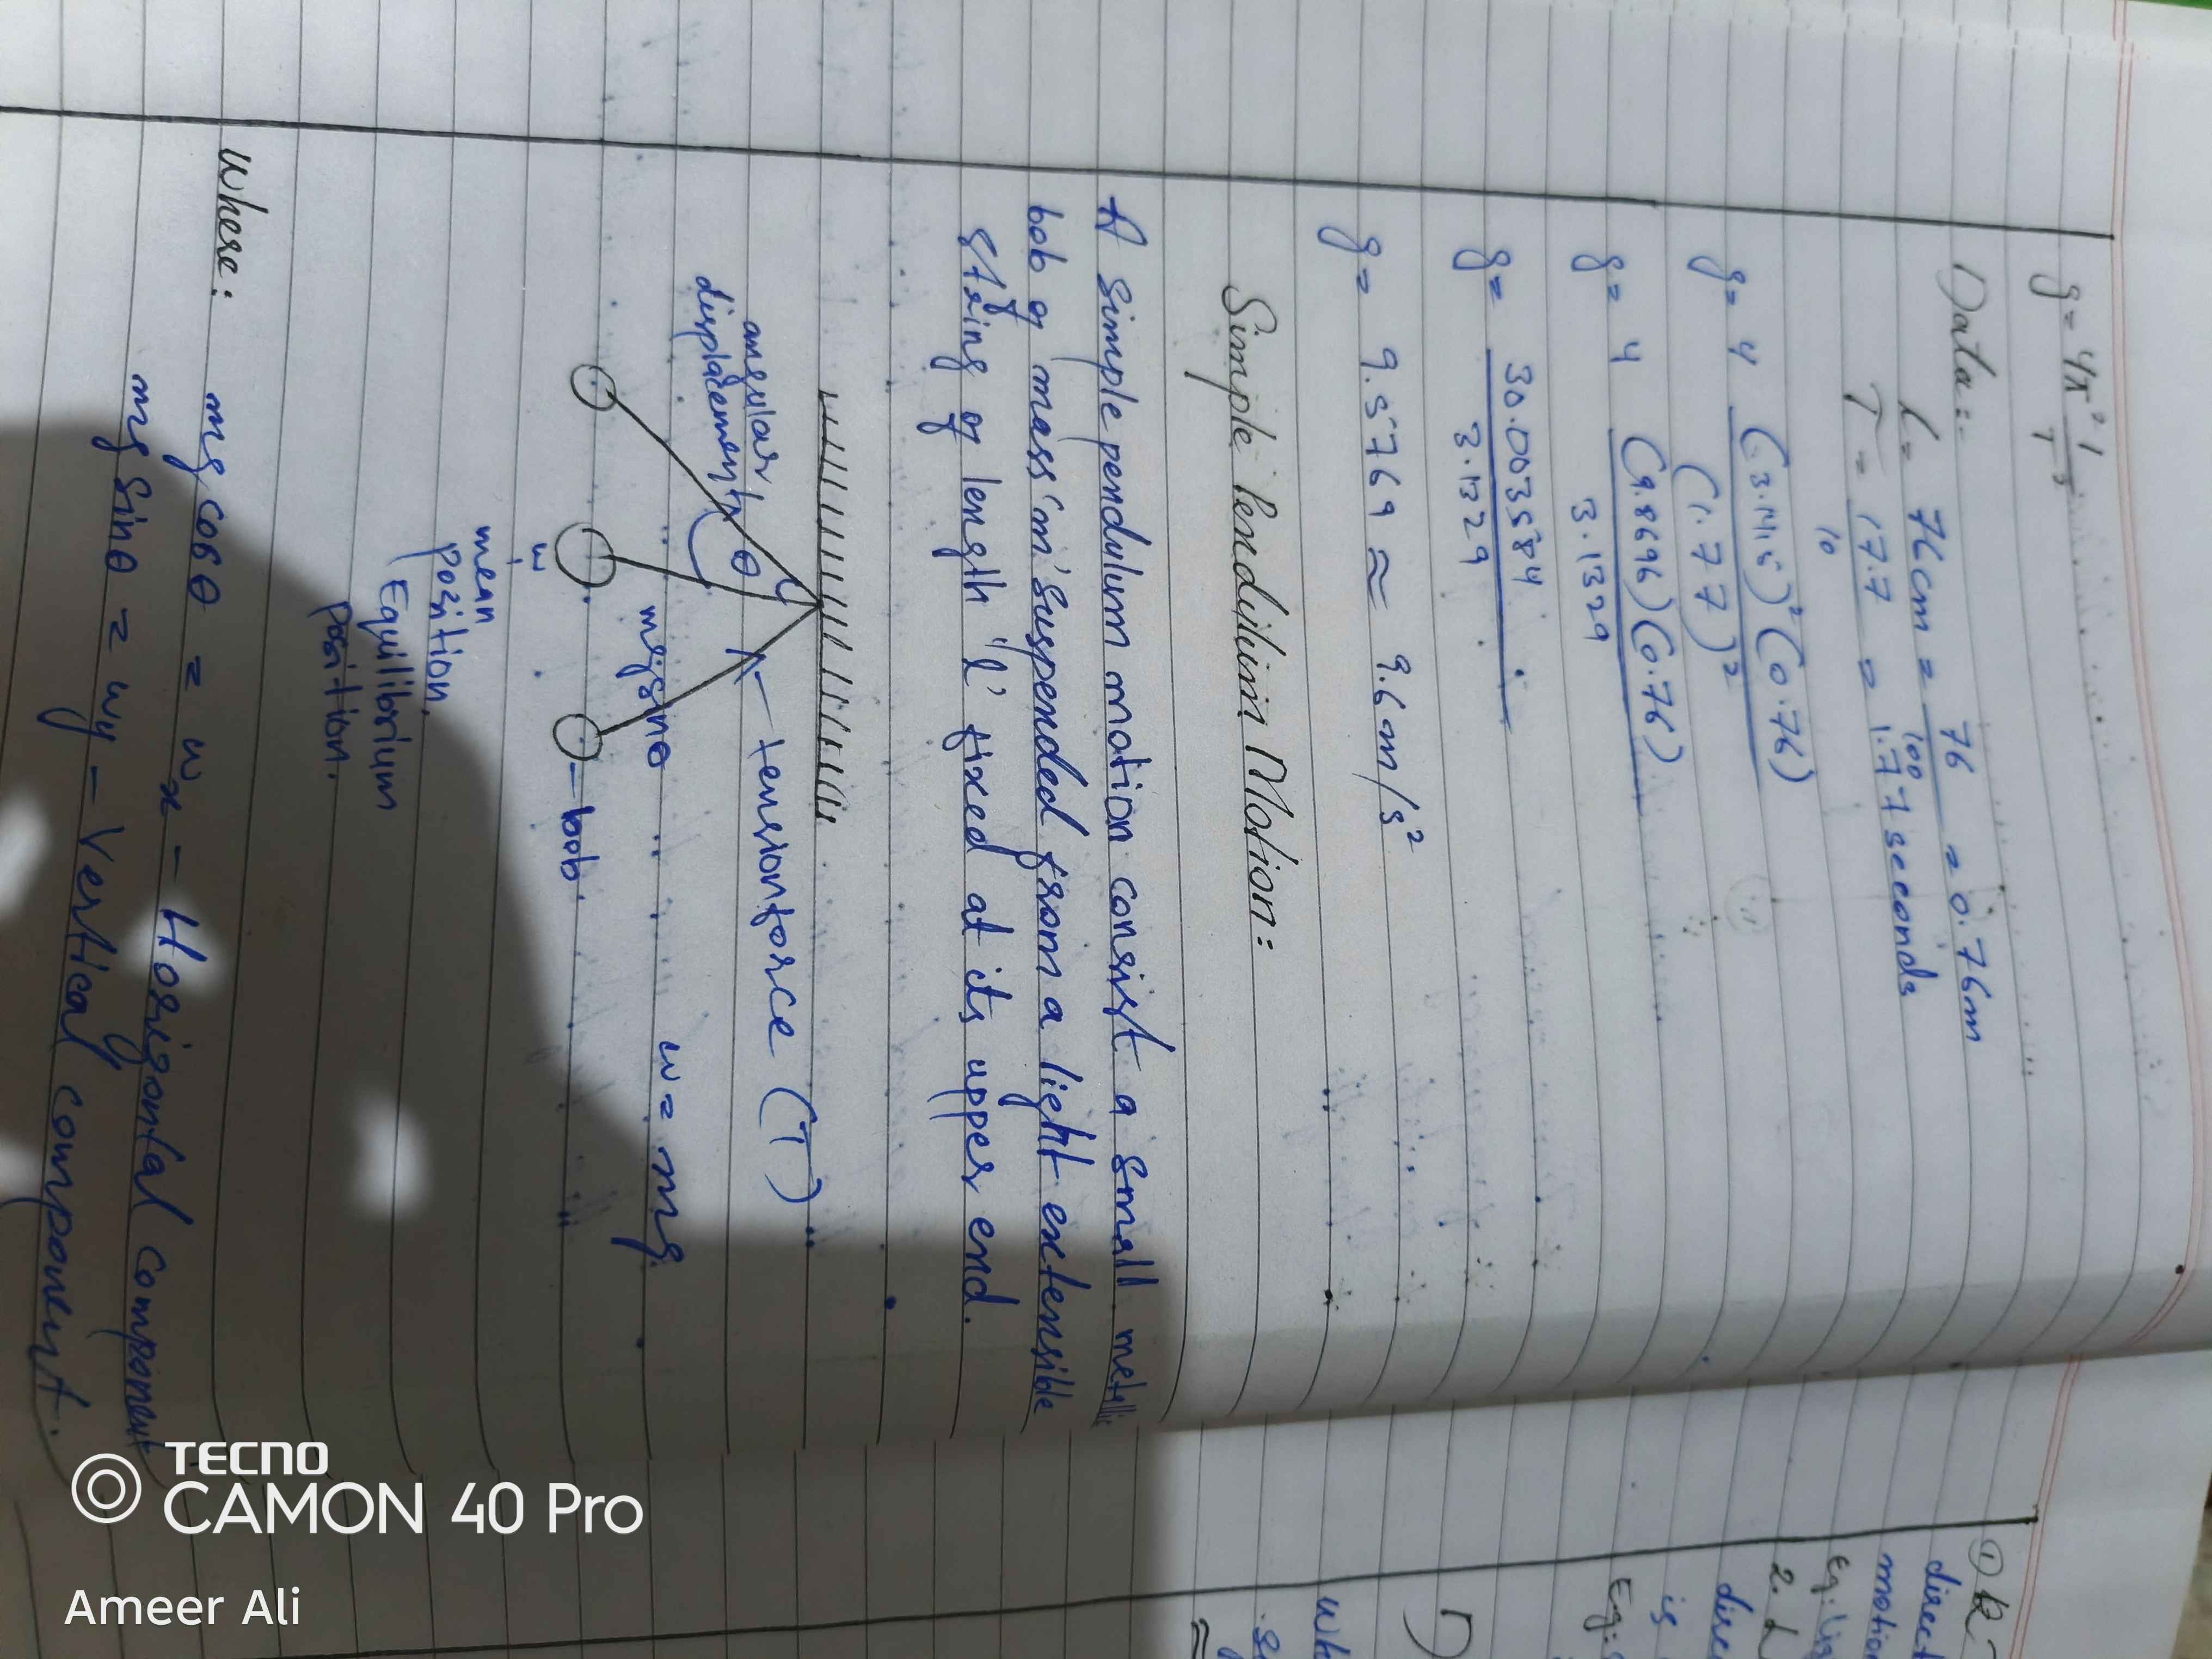 g= 4π² l
T²
Data:-
l= 76cm = 76 = 0.76m
100
T = 17.7 = 1.77 seconds
10
g= 4 (3.1415)² (0.76)
(1.77)²
g= 4 (9.8696) (0.76)
3.1329
g= 30.003584
3.1329
g= 9.5769 ≈ 9.6m/s²
Simple Pendulum Motion:
A simple pendulum motion consist a small metallic
bob of mass 'm' suspended from a light extensible
string of length 'l' fixed at its upper end.
angular
displacement
θ
tensionforce (T)
mgsinθ
w= mg
bob
w
mean
position,
Equilibrium
position.
where: mg cosθ = wx - Horizontal component
mg sinθ = wy - Vertical component.
direct
motion
Eg:
2.
is
Eg:
TECNO
CAMON 40 Pro
Ameer Ali